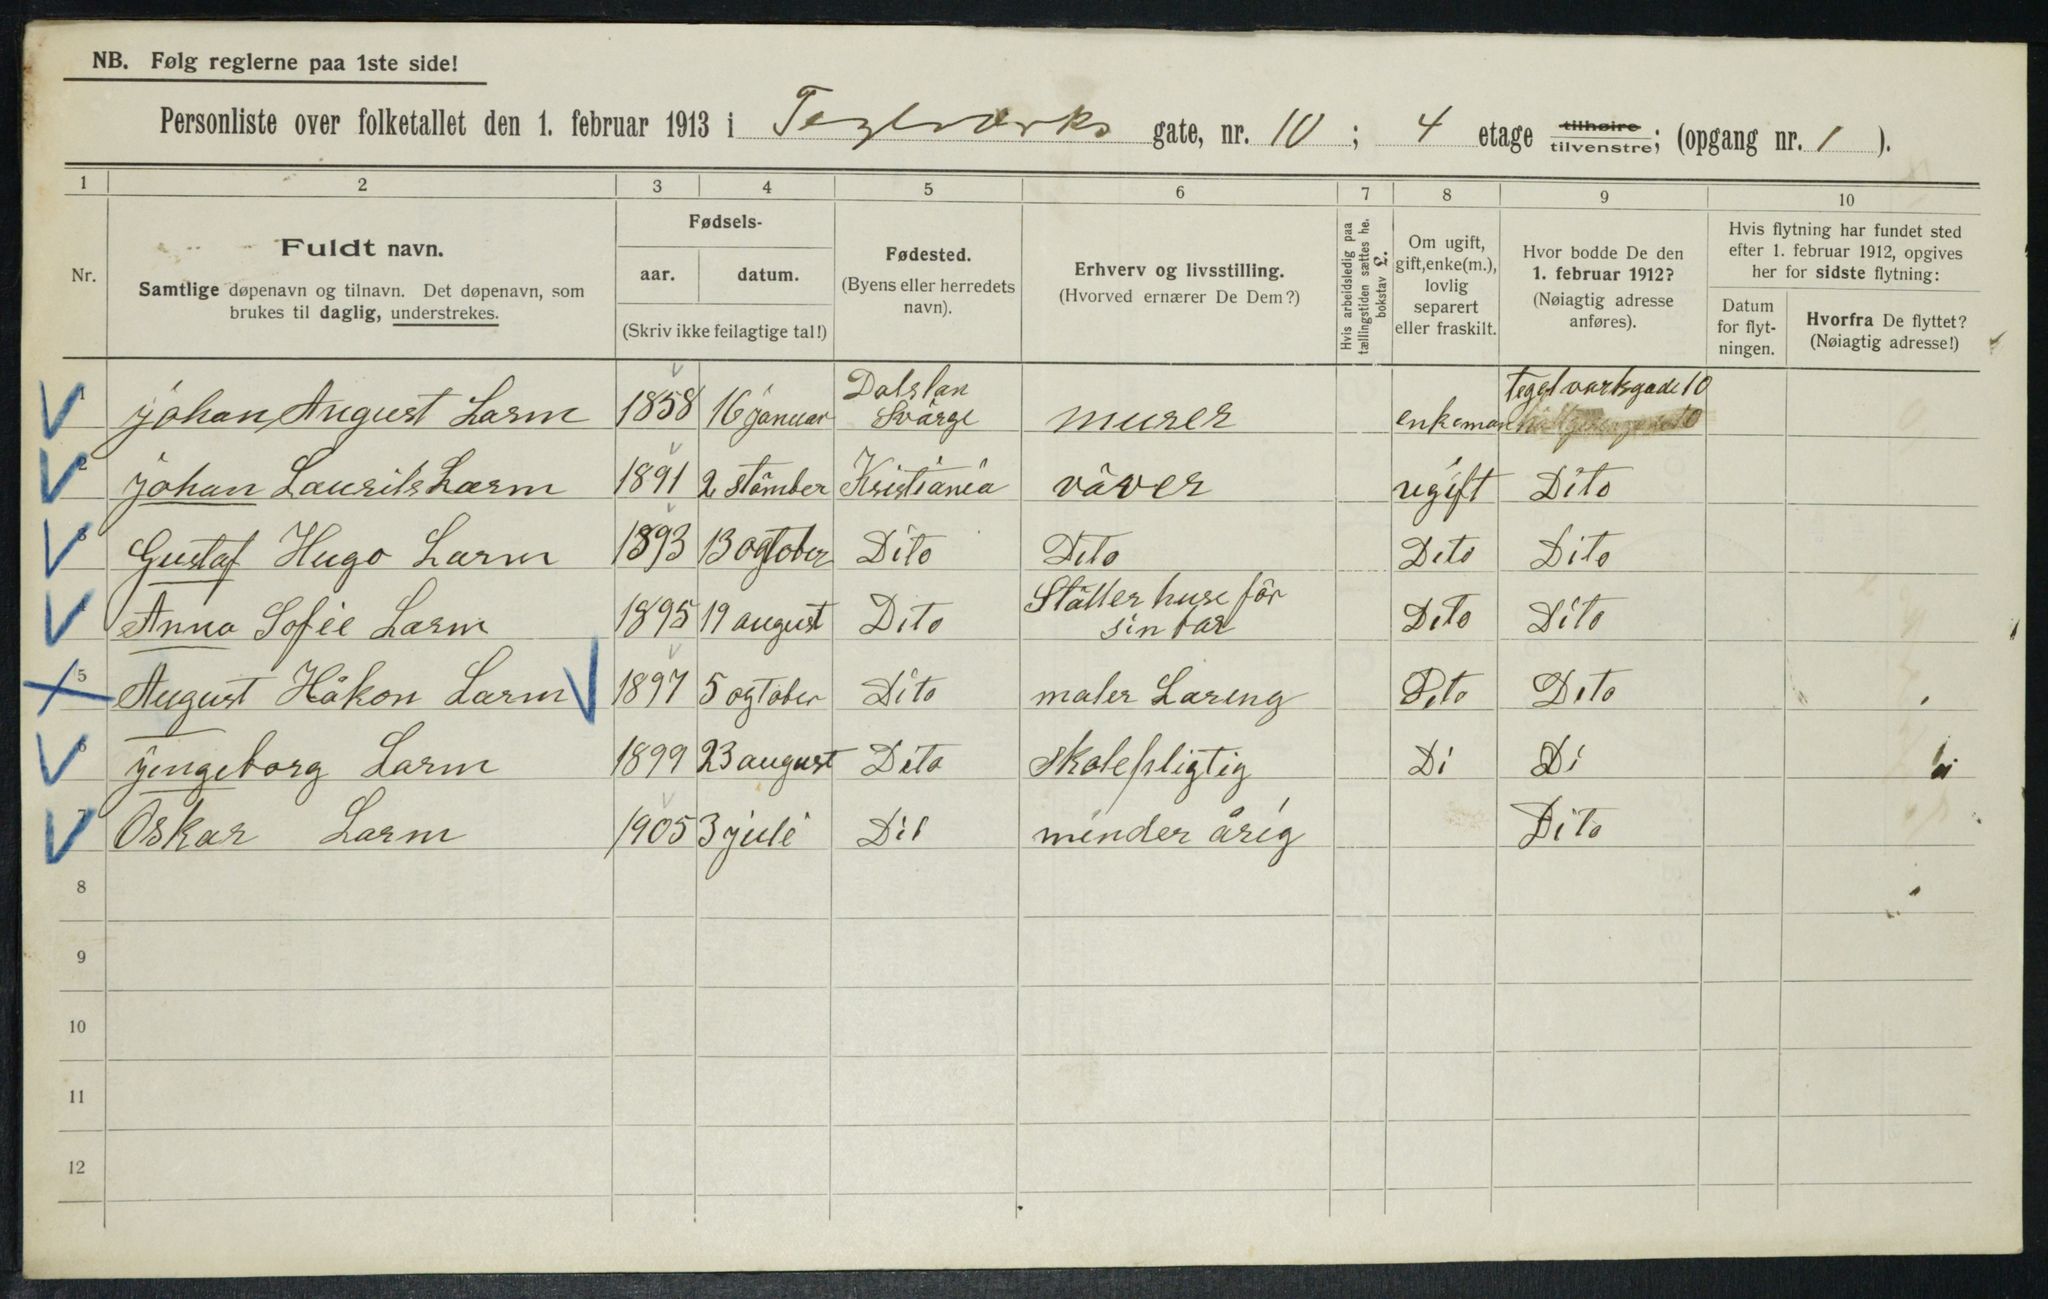 NB. Følg reglerne paa 1ste side!
Personliste over folketallet den 1. februar 1913 i Teglværks gate, nr. 10 ; 4 etage tilhøire tilvenstre; (opgang nr. 1 ).
1 2 3 4 5 6 7 8 9 10
Nr.
Fuldt navn.
Samtlige døpenavn og tilnavn. Det døpenavn, som
brukes til daglig, understrekes.
Fødsels-
aar. datum.
(Skriv ikke feilagtige tal!)
Fødested.
(Byens eller herredets
navn).
Erhverv og livsstilling.
(Hvorved ernærer De Dem?)
Hvis arbeidsledig paa
tællingstiden sættes her
bokstav L.
Om ugift,
gift, enke(m.),
lovlig
separert
eller fraskilt.
Hvor bodde De den
1. februar 1912?
(Nøiagtig adresse
anføres).
Hvis flytning har fundet sted
efter 1. februar 1912, opgives
her for sidste flytning:
Datum
for flyt-
ningen.
Hvorfra De flyttet?
(Nøiagtig adresse!)
1 johan August Larm 1858 16 januar Dalslan Svärge murer enkeman teggl varksgade 10
2 johan Laurits Larm 1891 2 stâmber Kristiania vâver ugift Dito
3 Gustaf Hugo Larm 1893 13 ogtober Dito Dito Dito Dito
4 Anna Sofie Larm 1895 19 august Dito Ställer huse för sin far Dito Dito
5 August Håkon Larm 1897 5 ogtober Dito maler Lareng Dito Dito
6 yengeborg Larm 1899 23 august Dito skolepligtig Di Di
7 Oskar Larm 1905 3 juli Dit minder årig Dito
8
9
10
11
12